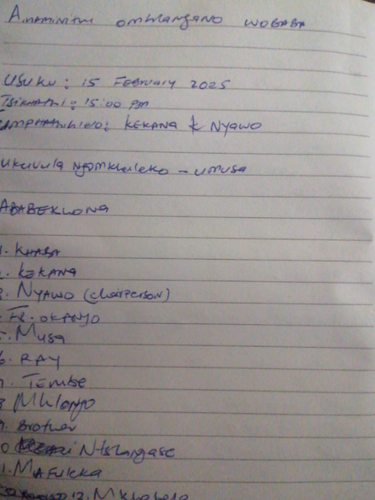 Amaminithi omhlangano wobaba
Usuku: 15 February 2025
Isikhathi: 15:00 pm
KEKANA & NYAWO
ukuvula ngomkhuleko - umusa
ABABEKHONA
1. KHABA
2. KEKANA
3. NYAWO (chairperson)
4. FR. OKANJO
5. Musa
6. RAY
7. Tembe
8 Mhlongo
9. Brother
10 Ntshangase
11. MAFUKKA
12.